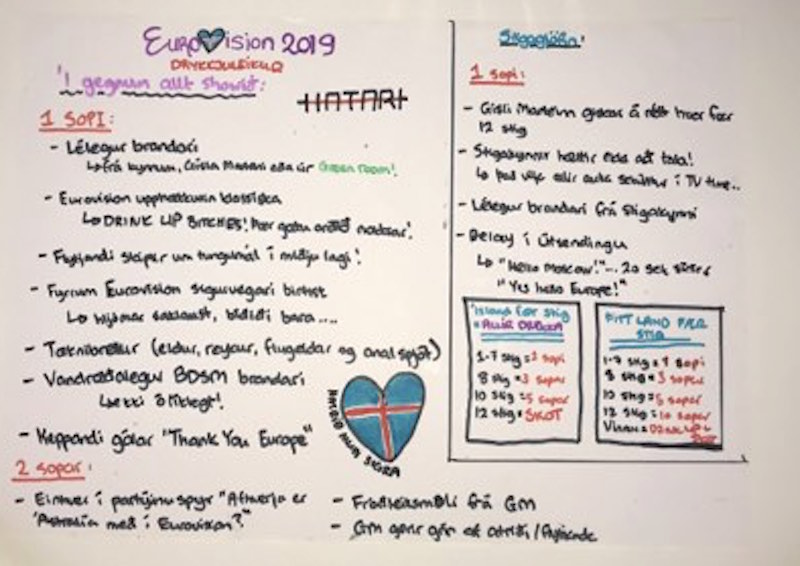 Eurovision 2019
DRYKKJULEIKUR
Í gegnum allt showið:
HATARI
1 SOPI:
- Lélegur brandari
↳ frá kynnum, Gísla Marteini eða úr Green room!
- Eurovision upphækkunin klassíska
↳ DRINK UP BITCHES! Þær gætu orðið nokkrar!
- Flytjandi skiptir um tungumál í miðju lagi!
- Fyrrum Eurovision sigurvegari birtist
↳ hljómar saklaust, bíðiði bara....
- Tæknibrellur (eldur, reykur, flugeldar og
- Vandræðalegur BDSM brandari
↳ ekki ólíklegt!
- Keppandi gólar "Thank You Europe"
HATRIÐ MUN SIGRA
2 sopar:
- Einhver í partýinu spyr "Afhverju er
Ástralía með í Eurovision?"
- Fróðleiksmoli frá GM
- GM gerir grín af atriði/flytjanda
Stigagjöfin!
1 sopi:
- Gísli Marteinn giskar á rétt hver fær
12 stig
- Stigakynnir hættir ekki að tala!
↳ Það vilja allir auka sekúndur í TV time..
- Lélegur brandari frá stigakynni
- Delay í útsendingu
↳ "Hello Moscow!"... 20 sek síðar
"Yes hello Europe!"
Ísland fær stig
= ALLIR DREKKA
1-7 stig = 1 sopi
8 stig = 3 sopar
10 stig = 5 sopar
12 stig = SKOT
ÞITT LAND FÆR
STIG
1-7 stig = 1 sopi
8 stig = 3 sopar
10 stig = 5 sopar
12 stig = 10 sopar